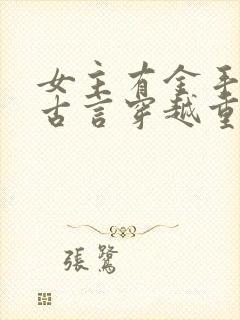 女主有金手
古言穿越重
張鷺